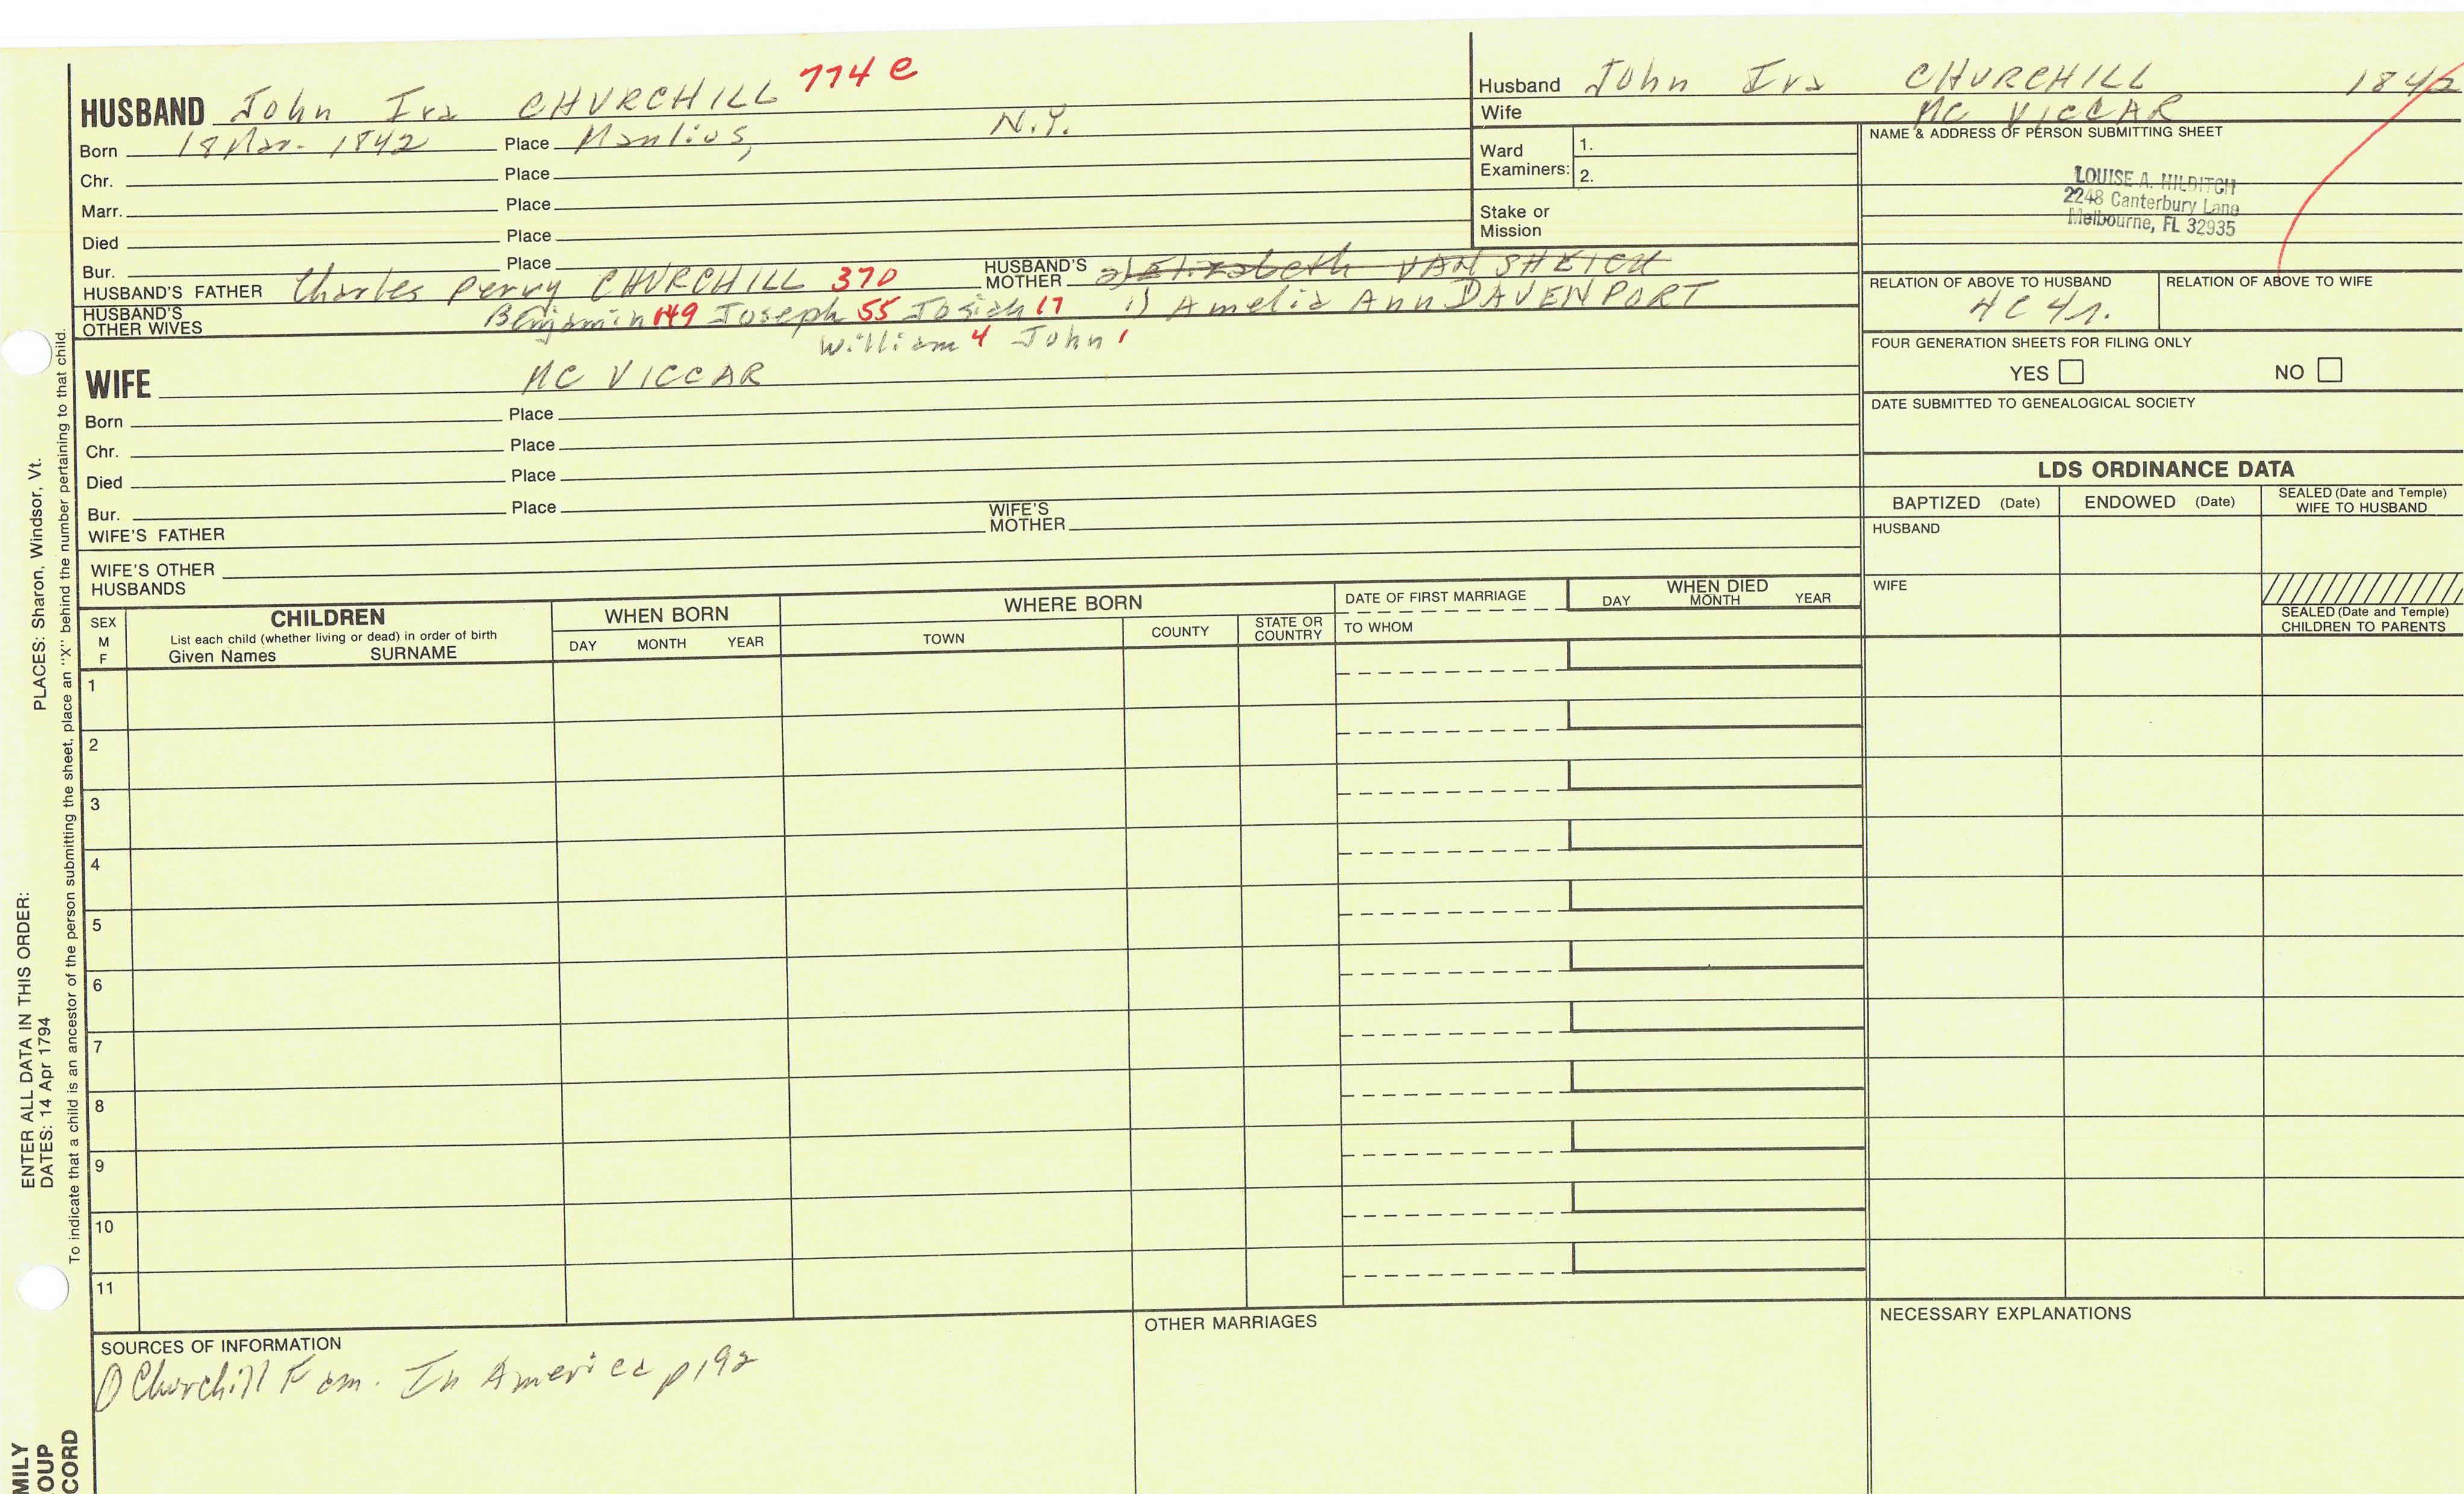 HUSBAND John Ira CHURCHILL 774 e
Born 18 Mar. 1842 Place Manlius, N.Y.
Chr. Place
Marr. Place
Died Place
Bur. Place
HUSBAND'S FATHER Charles Perry CHURCHILL 370 HUSBAND'S MOTHER 2) Elizabeth VAN SHEICK
HUSBAND'S OTHER WIVES Benjamin 149 Joseph 55 Josiah 17 1) Amelia Ann DAVENPORT
William 4 John 1
WIFE MC VICCAR
Born Place
Chr. Place
Died Place
Bur. Place
WIFE'S FATHER WIFE'S MOTHER
WIFE'S OTHER HUSBANDS
Husband John Ira CHURCHILL 1842
Wife MC VICCAR
Ward Examiners: 1.
2.
Stake or Mission
NAME & ADDRESS OF PERSON SUBMITTING SHEET
LOUISE A. HILDITCH
2248 Canterbury Lane
Melbourne, FL 32935
RELATION OF ABOVE TO HUSBAND RELATION OF ABOVE TO WIFE
FOUR GENERATION SHEETS FOR FILING ONLY
YES NO
DATE SUBMITTED TO GENEALOGICAL SOCIETY
LDS ORDINANCE DATA
BAPTIZED (Date) ENDOWED (Date) SEALED (Date and Temple) WIFE TO HUSBAND
HUSBAND
WIFE
SEALED (Date and Temple) CHILDREN TO PARENTS
SEX M F
CHILDREN
List each child (whether living or dead) in order of birth
Given Names SURNAME
WHEN BORN
DAY MONTH YEAR
WHERE BORN
TOWN COUNTY STATE OR COUNTRY
DATE OF FIRST MARRIAGE
TO WHOM
WHEN DIED
DAY MONTH YEAR
1
2
3
4
5
6
7
8
9
10
11
SOURCES OF INFORMATION
Churchill Fam. In America p192
OTHER MARRIAGES
NECESSARY EXPLANATIONS
ENTER ALL DATA IN THIS ORDER:
DATES: 14 Apr 1794 PLACES: Sharon, Windsor, Vt.
To indicate that a child is an ancestor of the person submitting the sheet, place an "X" behind the number pertaining to that child.
MILY
OUP
CORD